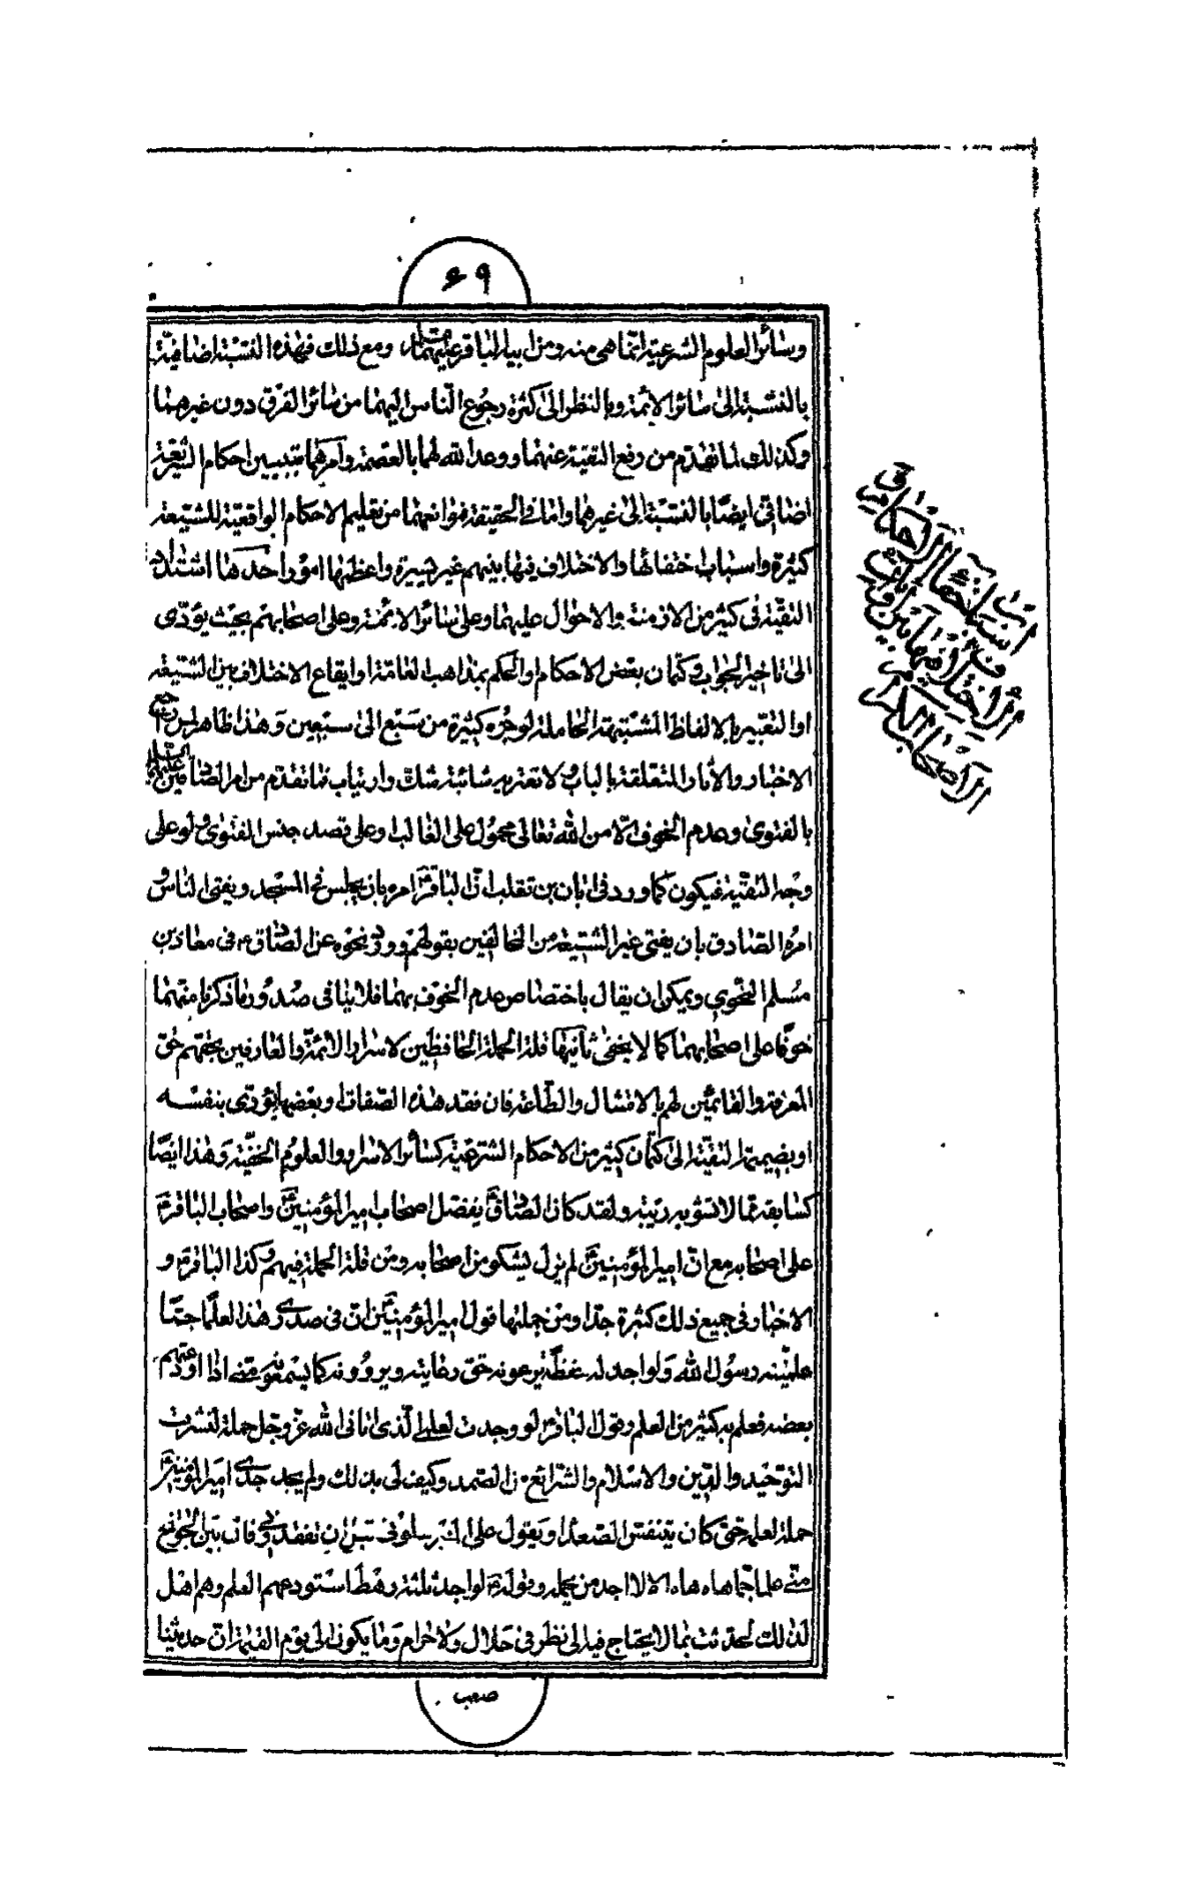 ۶۹
وسائر العلوم الشرعية انما هى منه ومن ابيه الباقر عليهما ومع ذلك فهذه النسبة اضافية
بالنسبة الى سائر الائمة وبالنظر الى كثرة رجوع الناس اليهما من سائر الفرق دون غيرهما
وكذلك لما تقدم من رفع التقية عنهما ووعد الله لهما بالعصمة وامرهما بتبيين احكام الشريعة
اضافى ايضا بالنسبة الى غيرهما واما فى الحقيقة فموانعهما من تعليم الاحكام الواقعية للشيعة
كثيرة واسباب اختفائها والاختلاف فيها بينهم غير يسيرة واعظمها امور احدها اشتداد
التقية فى كثير من الازمنة والاحوال عليهما وعلى سائر الائمة وعلى اصحابهم بحيث يؤدى
الى تاخير الجواب وكتمان بعض الاحكام او الحكم بمذاهب العامة او ايقاع الاختلاف بين الشيعة
او التعبير بالالفاظ المشتبهة الحاملة لوجوه كثيرة من سبع الى سبعين وهذا ظاهر لمن راجع
الاخبار والاثار المتعلقة بالباب لا تعتريه شائبة شك وارتياب فما تقدم من امر الصادقين عليهما السلم
بالفتوى وعدم الخوف الا من الله تعالى محمول على الغالب او على قصد جنس الفتوى ولو على
وجه التقية فيكون كما ورد فى ابان بن تغلب ان الباقر امره بان يجلس فى المسجد ويفتى الناس و
امره الصادق بان يفتى غير الشيعة من المخالفين بقولهم وورد نحوه عن الصادق فى معاذ بن
مسلم النحوى ويمكن ان يقال باختصاص عدم الخوف بهما فلا ينافى صدور ما ذكر منهما
خوفا على اصحابهما كما لا يخفى ثانيها قلة الحملة الحافظين لاسرار الائمة والعارفين بحقهم حق
المعرفة والقائمين لهم بالامتثال والطاعة فان فقد هذه الصفات او بعضها يؤدى بنفسه
او بضميمة التقية الى كتمان كثير من الاحكام الشرعية كسائر الاسرار والعلوم الخفية وهذا ايضا
كسابقه مما لا تشوبه ريبة ولقد كان الصادق يفضل اصحاب امير المؤمنين واصحاب الباقر
على اصحابه مع ان امير المؤمنين لم يزل يشكو من اصحابه ومن قلة الحملة فيهم وكذا الباقر و
الاخبار فى جميع ذلك كثيرة جدا ومن جملتها قول امير المؤمنين ان فى صدرى هذا لعلما جما
علمنيه رسول الله ولو اجد له حفظة يرعونه حق رعايته ويروونه كما يسمعونه منى اذا اودعتهم
بعضه فعلم به كثير من العلم وقول الباقر لو وجدت لعلمى الذى اتانى الله عز وجل حملة لنشرت
التوحيد والدين والاسلام والشرائع من الصمد وكيف لى بذلك ولم يجد جدى امير المؤمنين
حملة لعلمه حتى كان يتنفس الصعداء ويقول على المنبر سلونى قبل ان تفقدونى فان بين الجوانح
منى علما جما هاه هاه الا لا اجد من يحمله وقوله لو اجد ثلثة رهط استودعهم العلم وهم اهل
لذلك لحدثت بما لا يحتاج فيه الى نظر فى حلال ولا حرام وما يكون الى يوم القيمة ان حديثنا
صعب
اسباب اختفاء الاحكام
والاختلاف فيها بين
الاصحاب الكرام